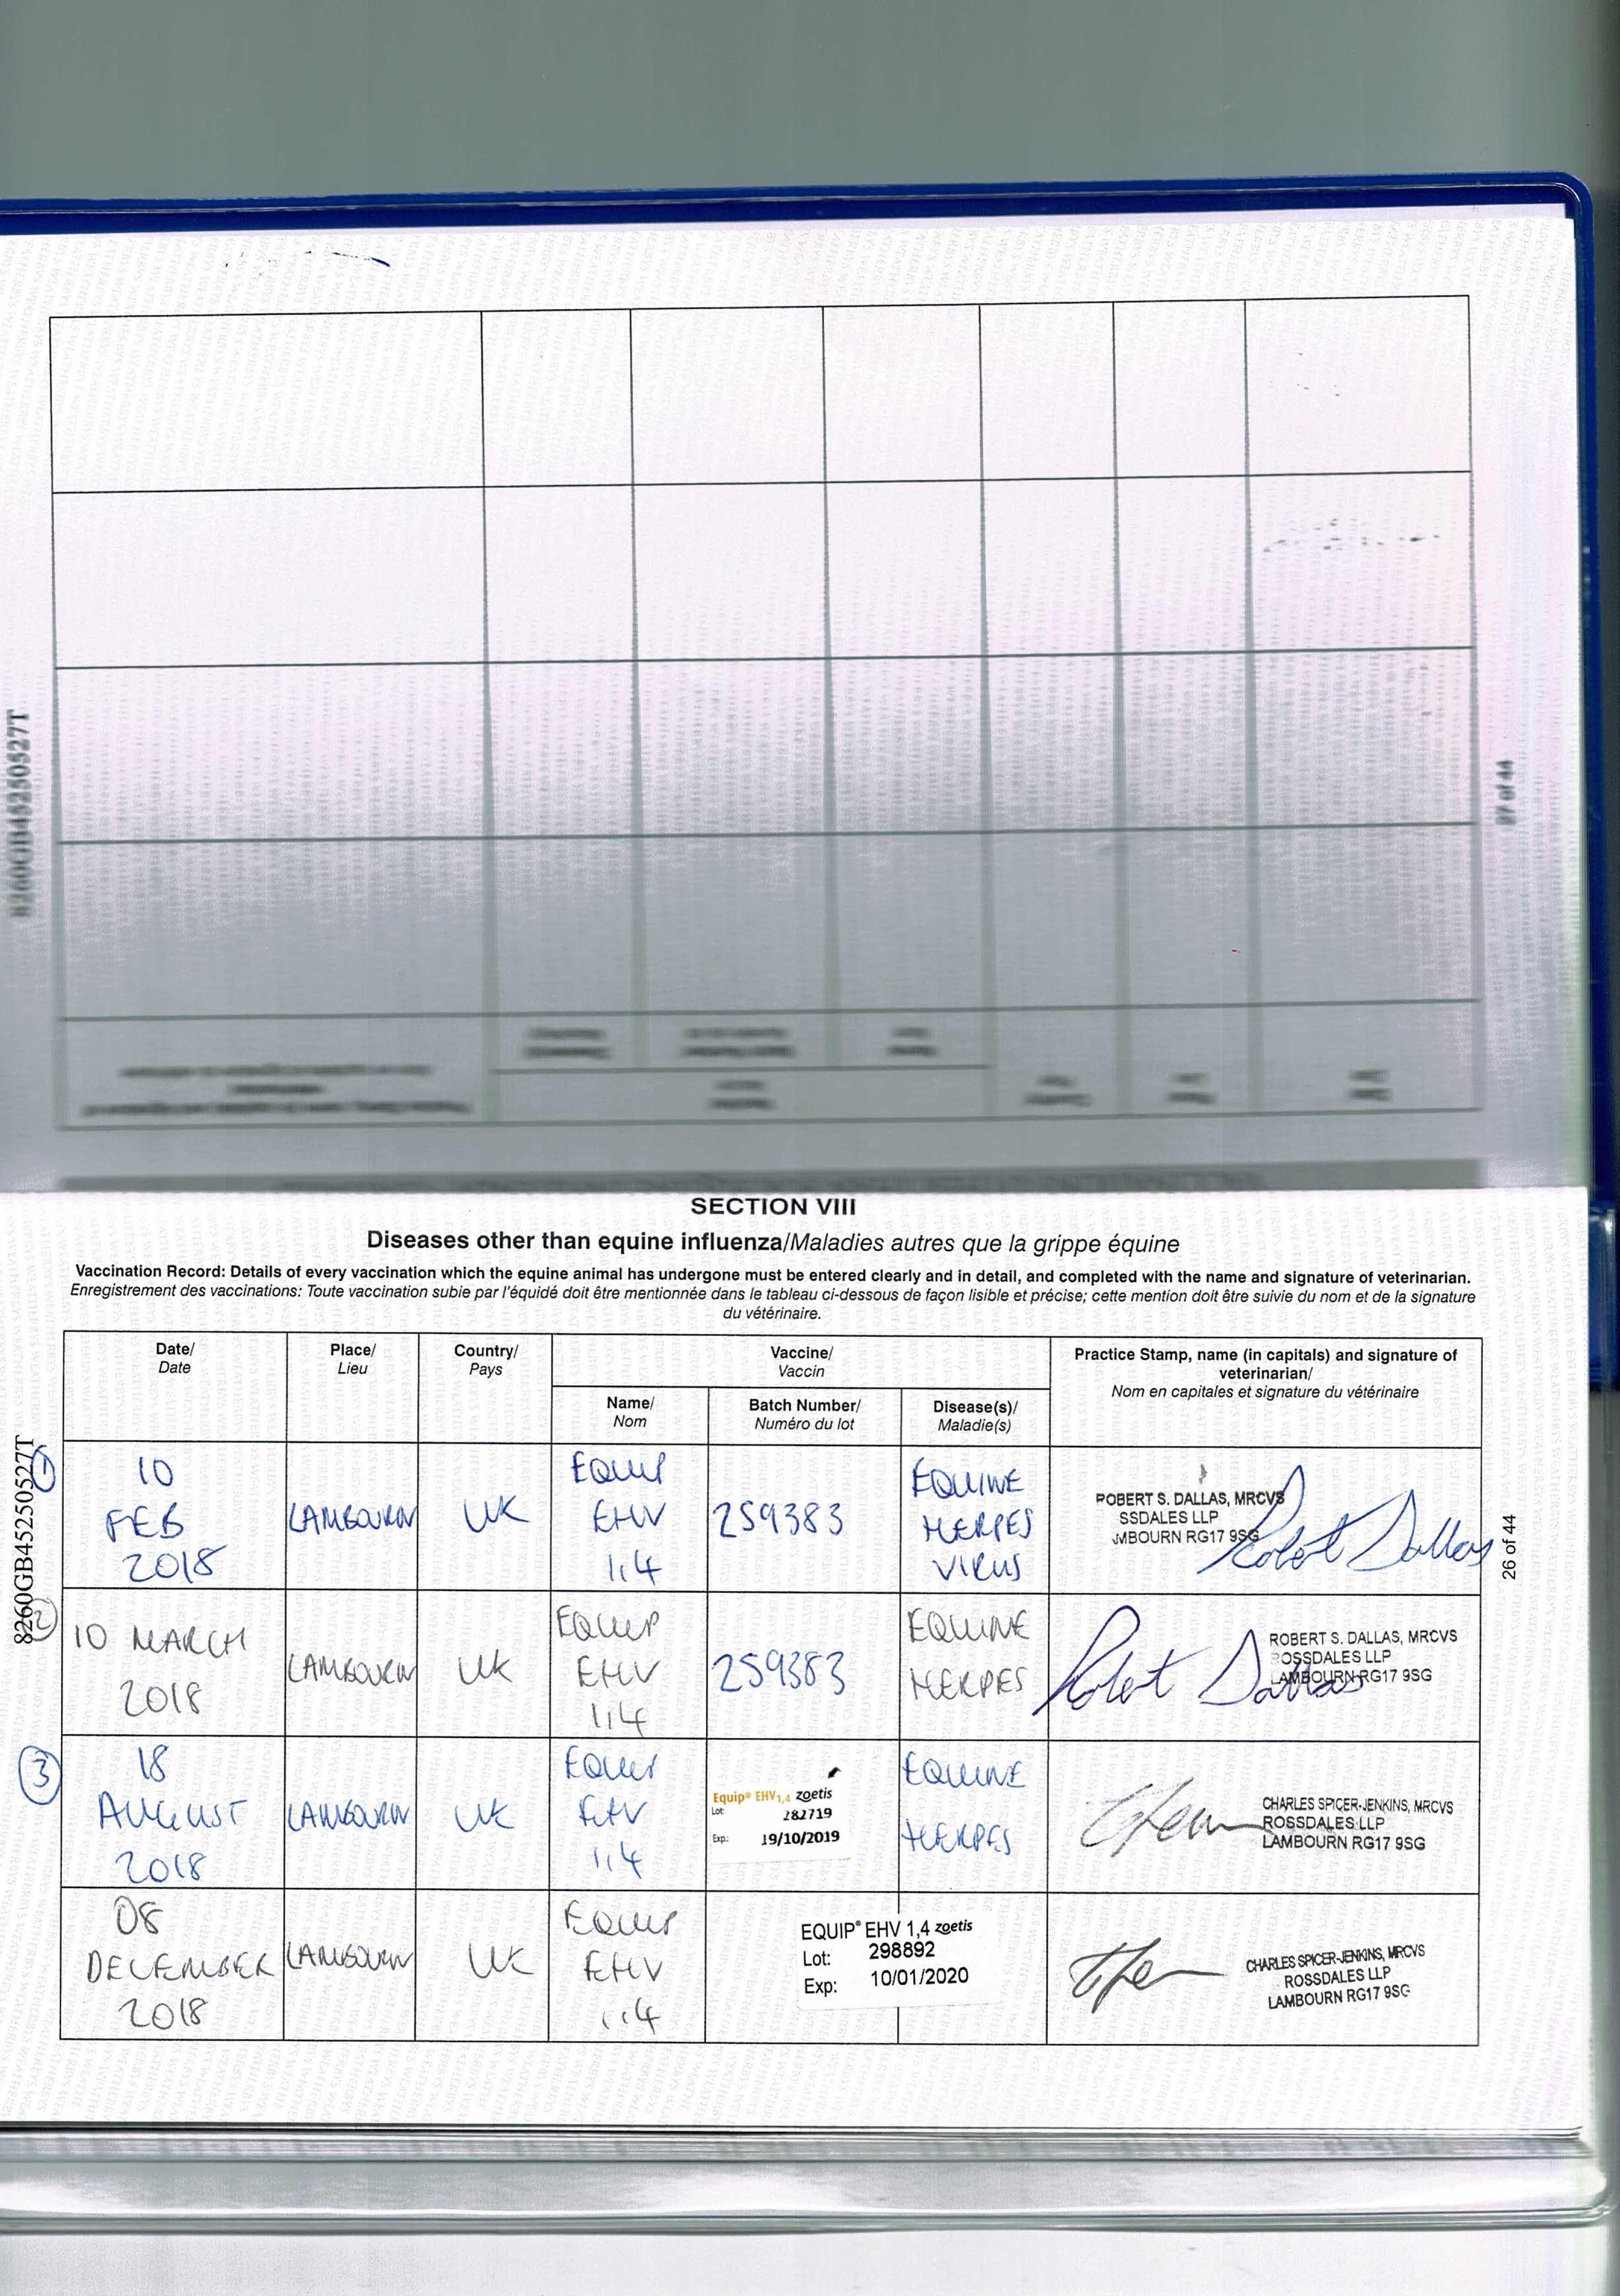 8260GB45250527T
27 of 44
SECTION VIII
Diseases other than equine influenza/Maladies autres que la grippe équine
Vaccination Record: Details of every vaccination which the equine animal has undergone must be entered clearly and in detail, and completed with the name and signature of veterinarian.
Enregistrement des vaccinations: Toute vaccination subie par l'équidé doit être mentionnée dans le tableau ci-dessous de façon lisible et précise; cette mention doit être suivie du nom et de la signature
du vétérinaire.
Date/
Date
Place/
Lieu
Country/
Pays
Vaccine/
Vaccin
Name/
Nom
Batch Number/
Numéro du lot
Disease(s)/
Maladie(s)
Practice Stamp, name (in capitals) and signature of
veterinarian/
Nom en capitales et signature du vétérinaire
8260GB45250527T
26 of 44
1
10
FEB
2018
LAMBOURN
UK
EQUIP
EHV
1,4
259383
EQUINE
HERPES
VIRUS
ROBERT S. DALLAS, MRCVS
SSDALES LLP
MBOURN RG17 9SG
Robert Dallas
2
10 MARCH
2018
LAMBOURN
UK
EQUIP
EHV
1,4
259383
EQUINE
HERPES
Robert Dallas
ROBERT S. DALLAS, MRCVS
ROSSDALES LLP
LAMBOURN RG17 9SG
3
18
AUGUST
2018
LAMBOURN
UK
EQUIP
EHV
1,4
Equip® EHV1,4 zoetis
Lot: 282719
Exp.: 19/10/2019
EQUINE
HERPES
CHARLES SPICER-JENKINS, MRCVS
ROSSDALES LLP
LAMBOURN RG17 9SG
08
DECEMBER
2018
LAMBOURN
UK
EQUIP
EHV
1,4
EQUIP® EHV 1,4 zoetis
Lot: 298892
Exp: 10/01/2020
CHARLES SPICER-JENKINS, MRCVS
ROSSDALES LLP
LAMBOURN RG17 9SG